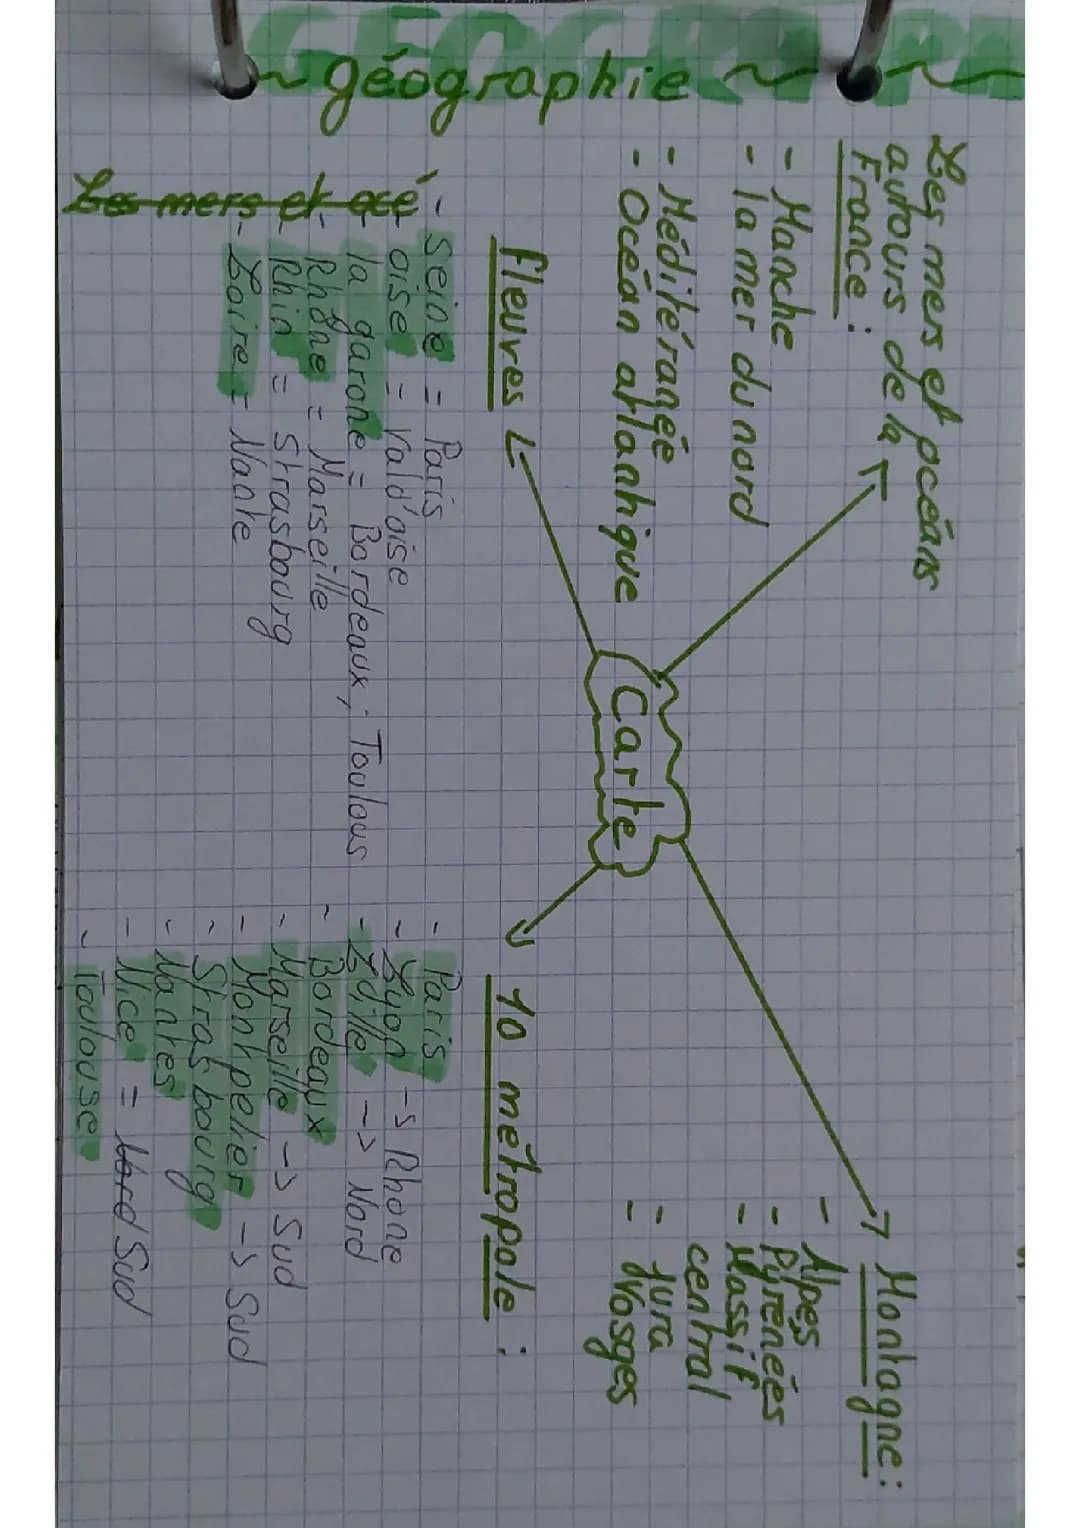 ~ géographie ~ ~
Les mers et océans
autours de la
France :
- Manche
- la mer du nord
- Méditéranée
- Océan atlantique
Carte
Montagne :
- Alpes
- Pyrenées
- Massif
central
- Jura
- Vosges
Fleuves
- Seine = Paris
- oise = Val d'oise
- la garone = Bordeaux, Toulous
- Rhône = Marseille
- Rhin = Strasbourg
- Loire = Nante
Les mers et océ
10 métropole :
- Paris
- Lyon -> Rhone
- Lille -> Nord
- Bordeaux
- Marseille -> Sud
- Montpelier -> Sud
- Strasbourg
- Nantes
- Nice = Nord Sud
- Toulouse